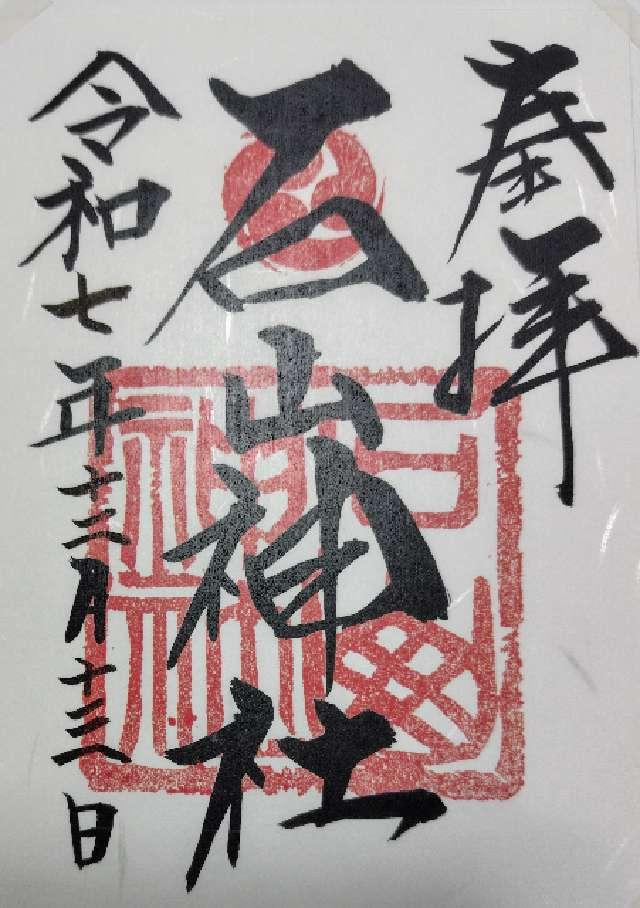 奉拝
石山神社
令和七年十二月十三日